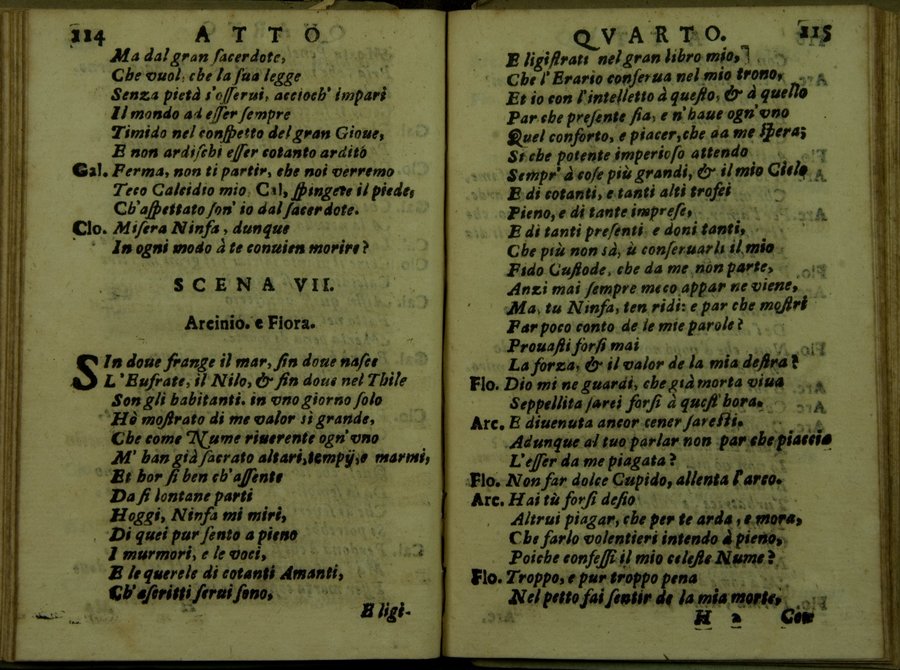 114 ATTO
Ma dal gran sacerdote,
Che vuol, che la sua legge
Senza pietà s'osserui, accioch' impari
Il mondo ad esser sempre
Timido nel conspetto del gran Gioue,
E non ardischi esser cotanto ardito
Gal. Ferma, non ti partir, che noi verremo
Teco Calcidio mio Cal, spingete il piede;
Ch'aspettato son' io dal sacerdote.
Clo. Misera Ninfa, dunque
In ogni modo à te conuien morire?
SCENA VII.
Arcinio. e Flora.
SIn doue frange il mar, sin doue nasce
L'Eufrate, il Nilo, & sin doue nel Thile
Son gli habitanti. in vno giorno solo
Hò mostrato di me valor sì grande,
Che come Nume riuerente ogn'vno
M' han già sacrato altari, tempÿ, e marmi,
Et hor si ben ch'assente
Da si lontane parti
Hoggi, Ninfa mi miri,
Di quei pur sento a pieno
I murmori, e le voci,
E le querele di cotanti Amanti,
Ch'ascritti serui sono,
E ligi-
QVARTO. 115
E ligistrati nel gran libro mio,
Che l'Erario conserua nel mio trono,
Et io con l'intelletto à questo, & à quello
Par che presente sia, e n'haue ogn'vno
Quel conforto, e piacer, che da me spera;
Si che potente imperioso attendo
Sempr' à cose più grandi, & il mio Cielo
E di cotanti, e tanti alti trofei
Pieno, e di tante imprese,
E di tanti presenti e doni tanti,
Che più non sà, ù conseruarli il mio
Fido Custode, che da me non parte,
Anzi mai sempre meco appar ne viene,
Ma, tu Ninfa, ten ridi: e par che mostri
Far poco conto de le mie parole?
Prouasti forsi mai
La forza, & il valor de la mia destra?
Flo. Dio mi ne guardi, che già morta viua
Seppellita sarei forsi à quest' hora.
Arc. E diuenuta ancor cener saresti.
Adunque al tuo parlar non par che piaccia
L'esser da me piagata?
Flo. Non far dolce Cupido, allenta l'arco.
Arc. Hai tù forsi desio
Altrui piagar, che per te arda, e mora,
Che farlo volentieri intendo à pieno,
Poiche confessi il mio celeste Nume?
Flo. Troppo, e pur troppo pena
Nel petto fai sentir de la mia morte,
H 2 Con